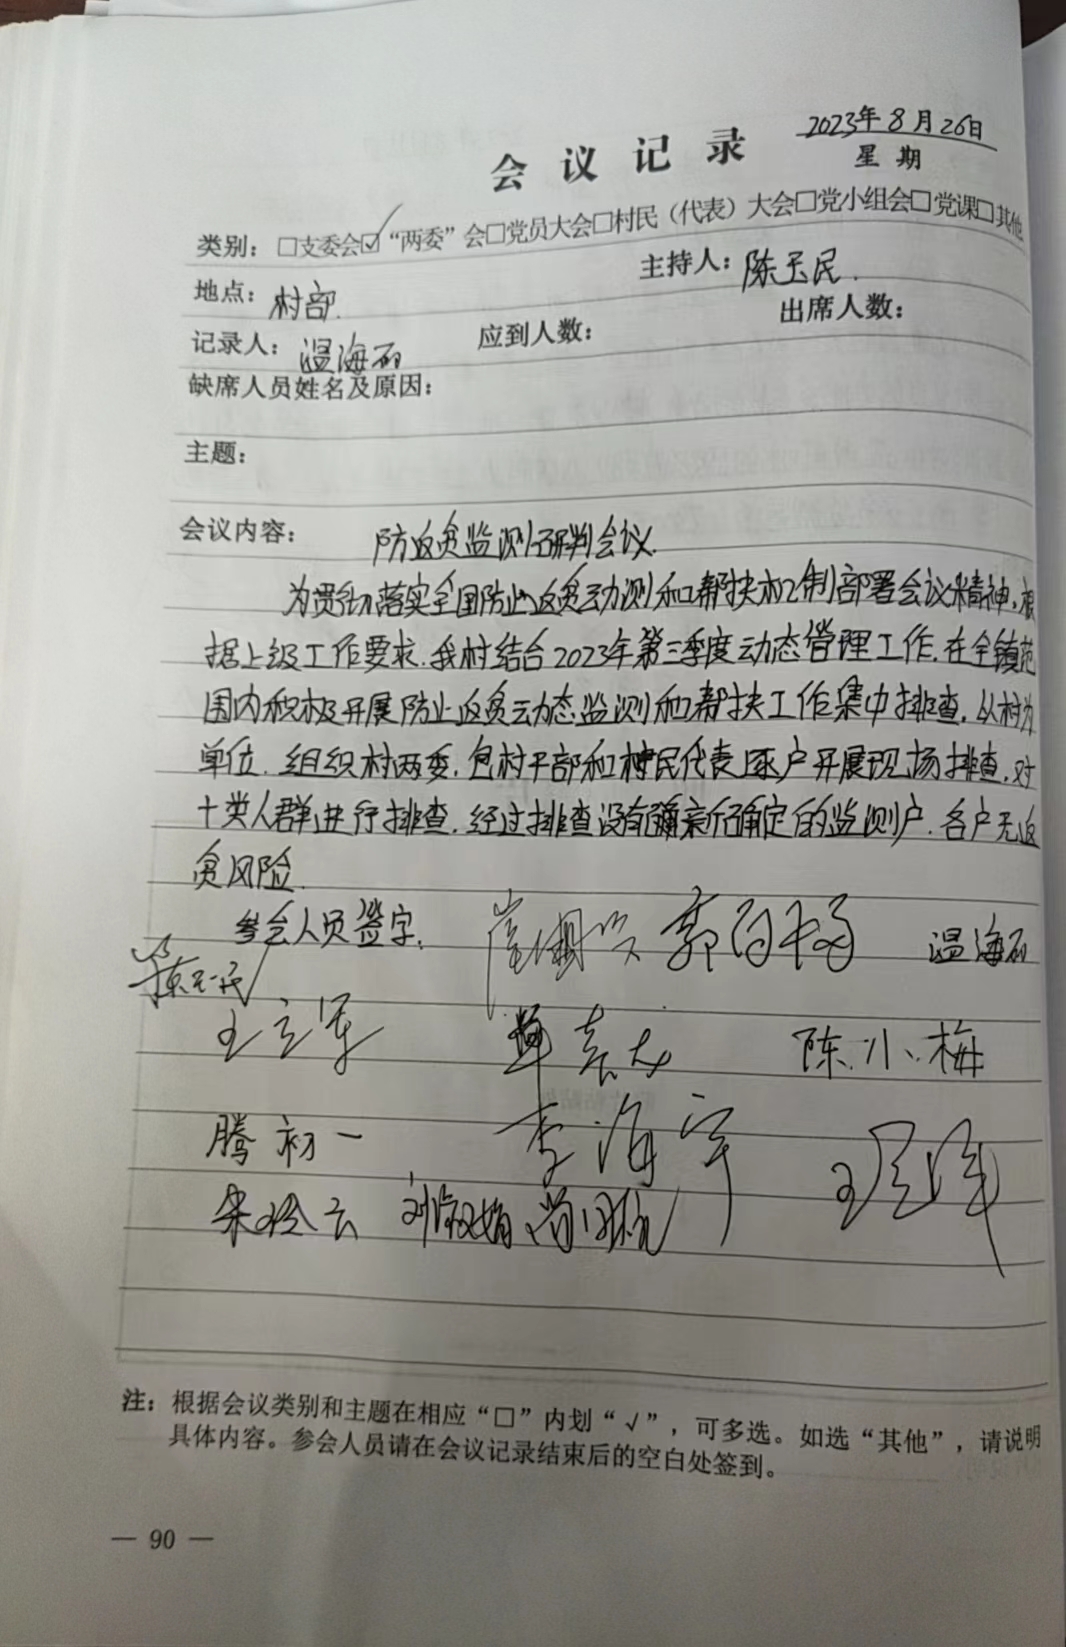 2023年8月26日
会议记录
星期
类别：□支委会☑“两委”会□党员大会□村民（代表）大会□党小组会□党课□其他
地点：村部.
主持人：陈玉民.
记录人：温海石
应到人数：
出席人数：
缺席人员姓名及原因：
主题：
会议内容：防返贫监测研判会议.
为贯彻落实全国防止返贫动测和帮扶机制部署会议精神，根
据上级工作要求.我村结合2023年第三季度动态管理工作.在全镇范
围内积极开展防止返贫动态监测和帮扶工作集中排查，以村为
单位.组织村两委.包村干部和村民代表逐户开展现场排查.对
十类人群进行排查.经过排查没有新确定的监测户.各户无返
贫风险.
参会人员签字.
温海石
陈玉民
王立军
陈小梅
腾初一
李海宇
注：根据会议类别和主题在相应“□”内划“√”，可多选。如选“其他”，请说明
具体内容。参会人员请在会议记录结束后的空白处签到。
— 90 —